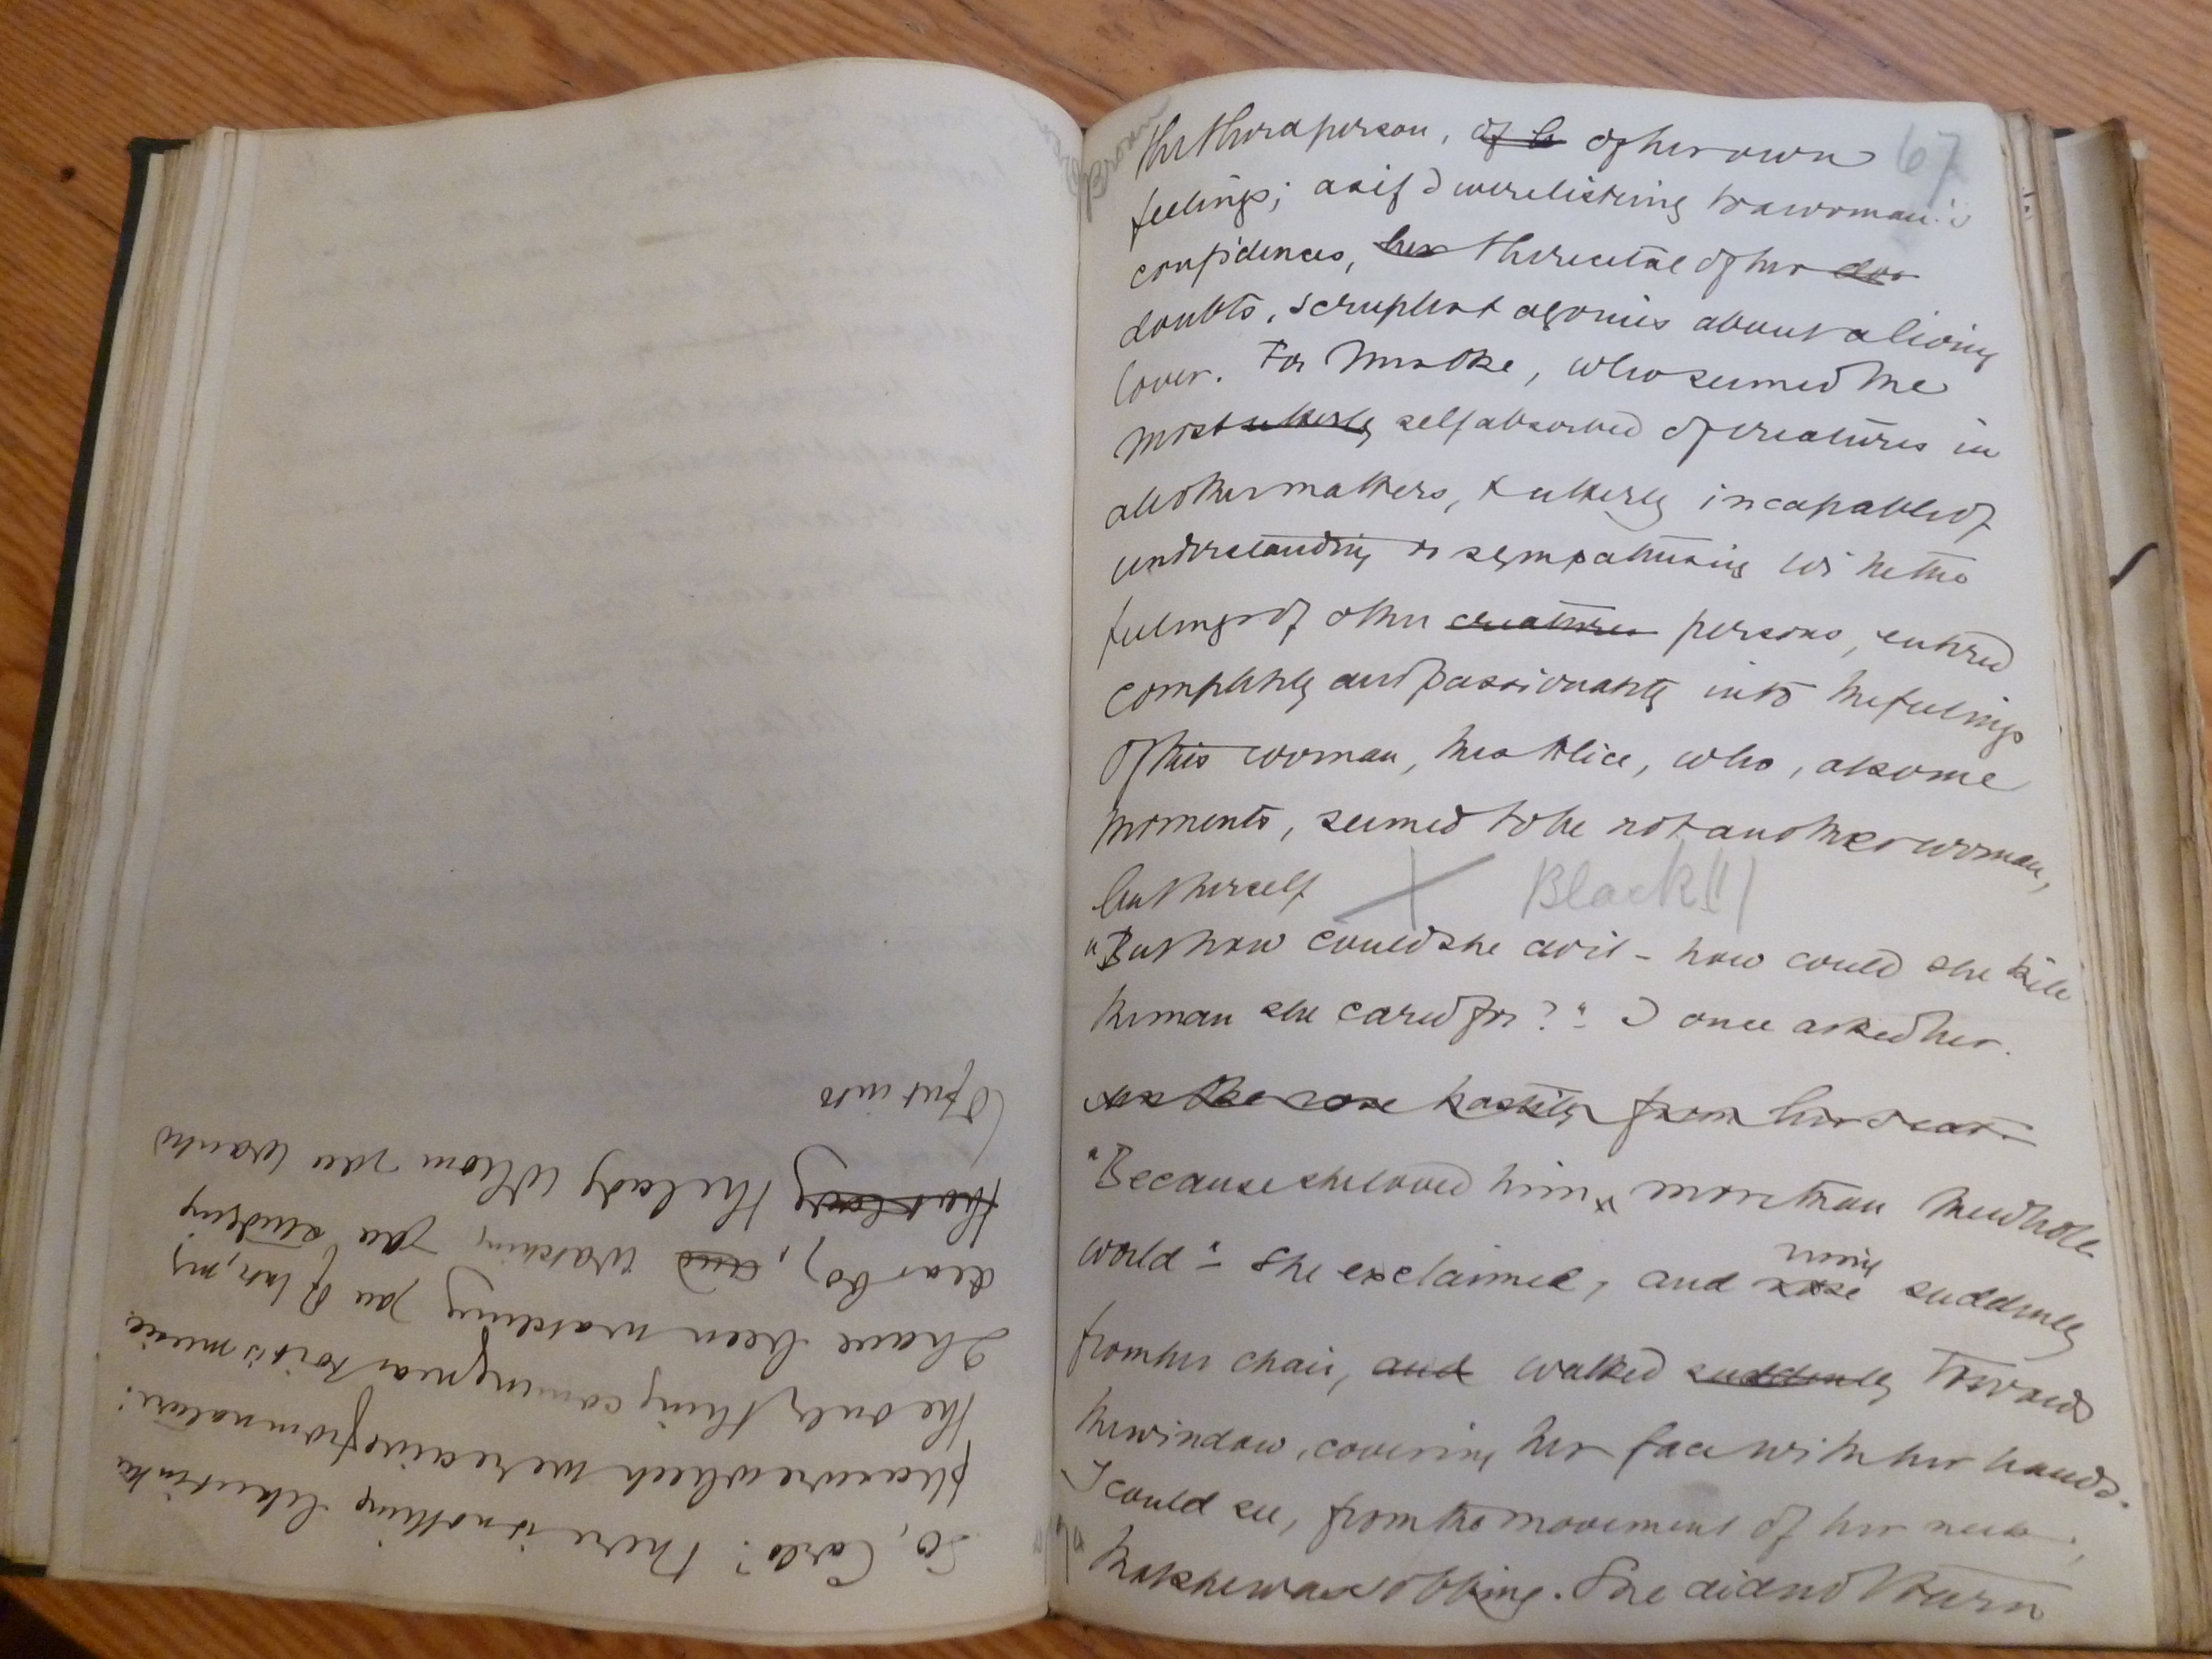 Brown
67
the third person, of h of her own
feelings; as if I were listening to a woman's
confidences, her the recital of her dou
doubts, scruples & agonies about a living
lover. For Mrs Oke, who seemed the
most utterly self absorbed of creatures in
all other matters, & utterly incapable of
understanding or sympathising with the
feelings of other creatures persons, entered
completely and passionately into the feelings
of this woman, this Alice, who, at some
moments, seemed to be not another woman,
but herself
X Black!!
"But how could she do it - how could she kill
the man she cared for?" I once asked her.
Mrs Oke rose hastily from her seat.
"Because she loved him, more than the whole
world" - she exclaimed, and rose rising suddenly
from her chair, and walked suddenly towards
the window, covering her face with her hands.
I could see, from the movement of her neck,
that she was sobbing. She did not turn
So, Carlo! There is nothing like it in the
pleasure which we receive from nature:
the only thing coming near to it is music.
I have been watching you of late, my
dear boy, and watching you studying
the lady the lady whom you wants
to put into